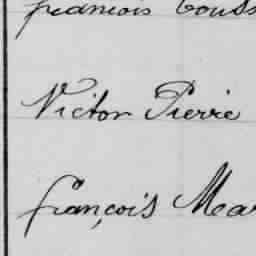 françois Touss
Victor Pierre
françois Mar